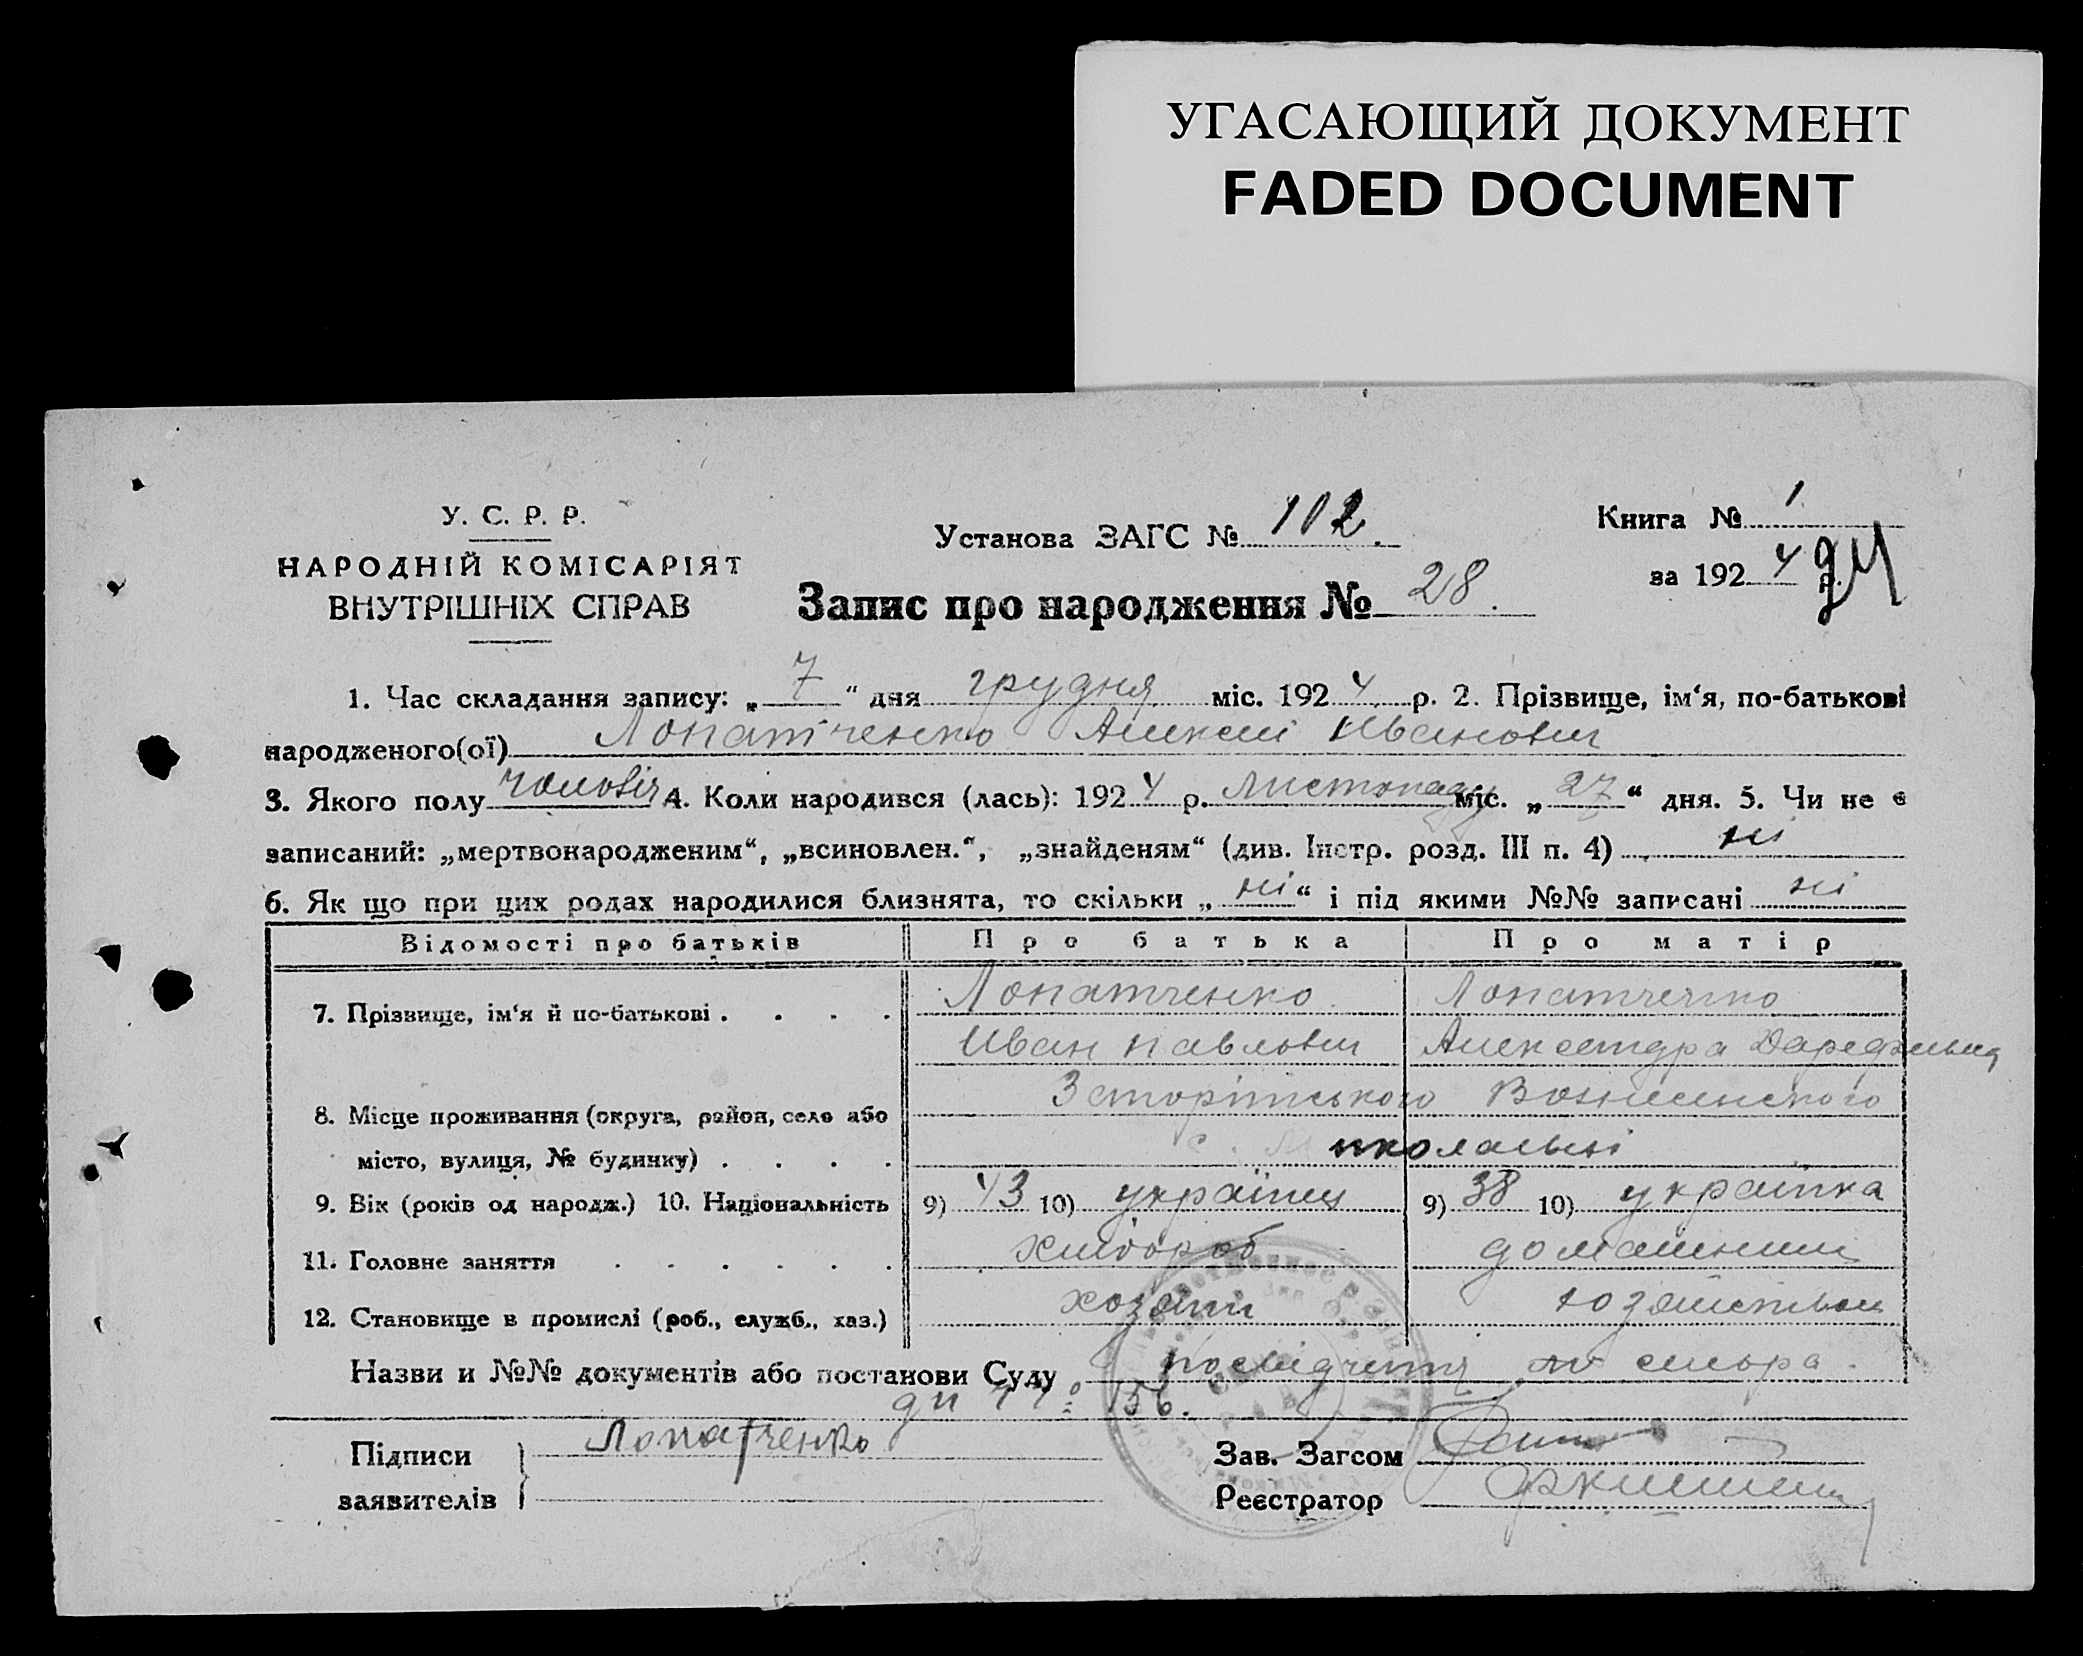 УГАСАЮЩИЙ ДОКУМЕНТ
FADED DOCUMENT
У. С. Р. Р.
НАРОДНІЙ КОМІСАРІЯТ
ВНУТРІШНІХ СПРАВ
Установа ЗАГС № 102.
Запис про народження № 28.
Книга № 1
за 1924 р.
24
1. Час складання запису: „ 7 " дня грудня міс. 1924 р. 2. Прізвище, ім'я, по-батькові
народженого(ої) Лопатченко Алексей Иванович
3. Якого полу чоловіч 4. Коли народився (лась): 1924 р. листопаду міс. „ 27 " дня. 5. Чи не є
записаний: „мертвонародженим", „всиновлен.", „знайденям" (див. Інстр. розд. III п. 4) ні
6. Як що при цих родах народилися близнята, то скільки „ ні " і під якими №№ записані ні
Відомості про батьків Про батька Про матір
7. Прізвище, ім'я й по-батькові . . . . Лопатченко Лопатченко
Иван Павлович Александра
8. Місце проживання (округа, район, село або
місто, вулиця, № будинку) . . . . с. Миколаевкі
9. Вік (років од народж.) 10. Національність 9) 43 10) українец 9) 38 10) українка
11. Головне заняття . . . . . . хлібороб домашним
12. Становище в промислі (роб., служб., хаз.) хозяин хозяйством
Назви и №№ документів або постанови Суду посвідчення
№ 156.
Підписи
заявителів
Лопатченко
Зав. Загсом
Реєстратор